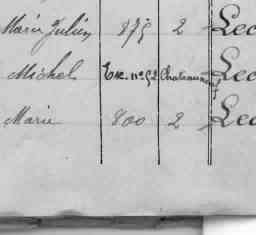 Marie Julien 875 2 Lec
Michel Exc. n° 52 Chateauneuf Lec
Marie 800 2 Lec